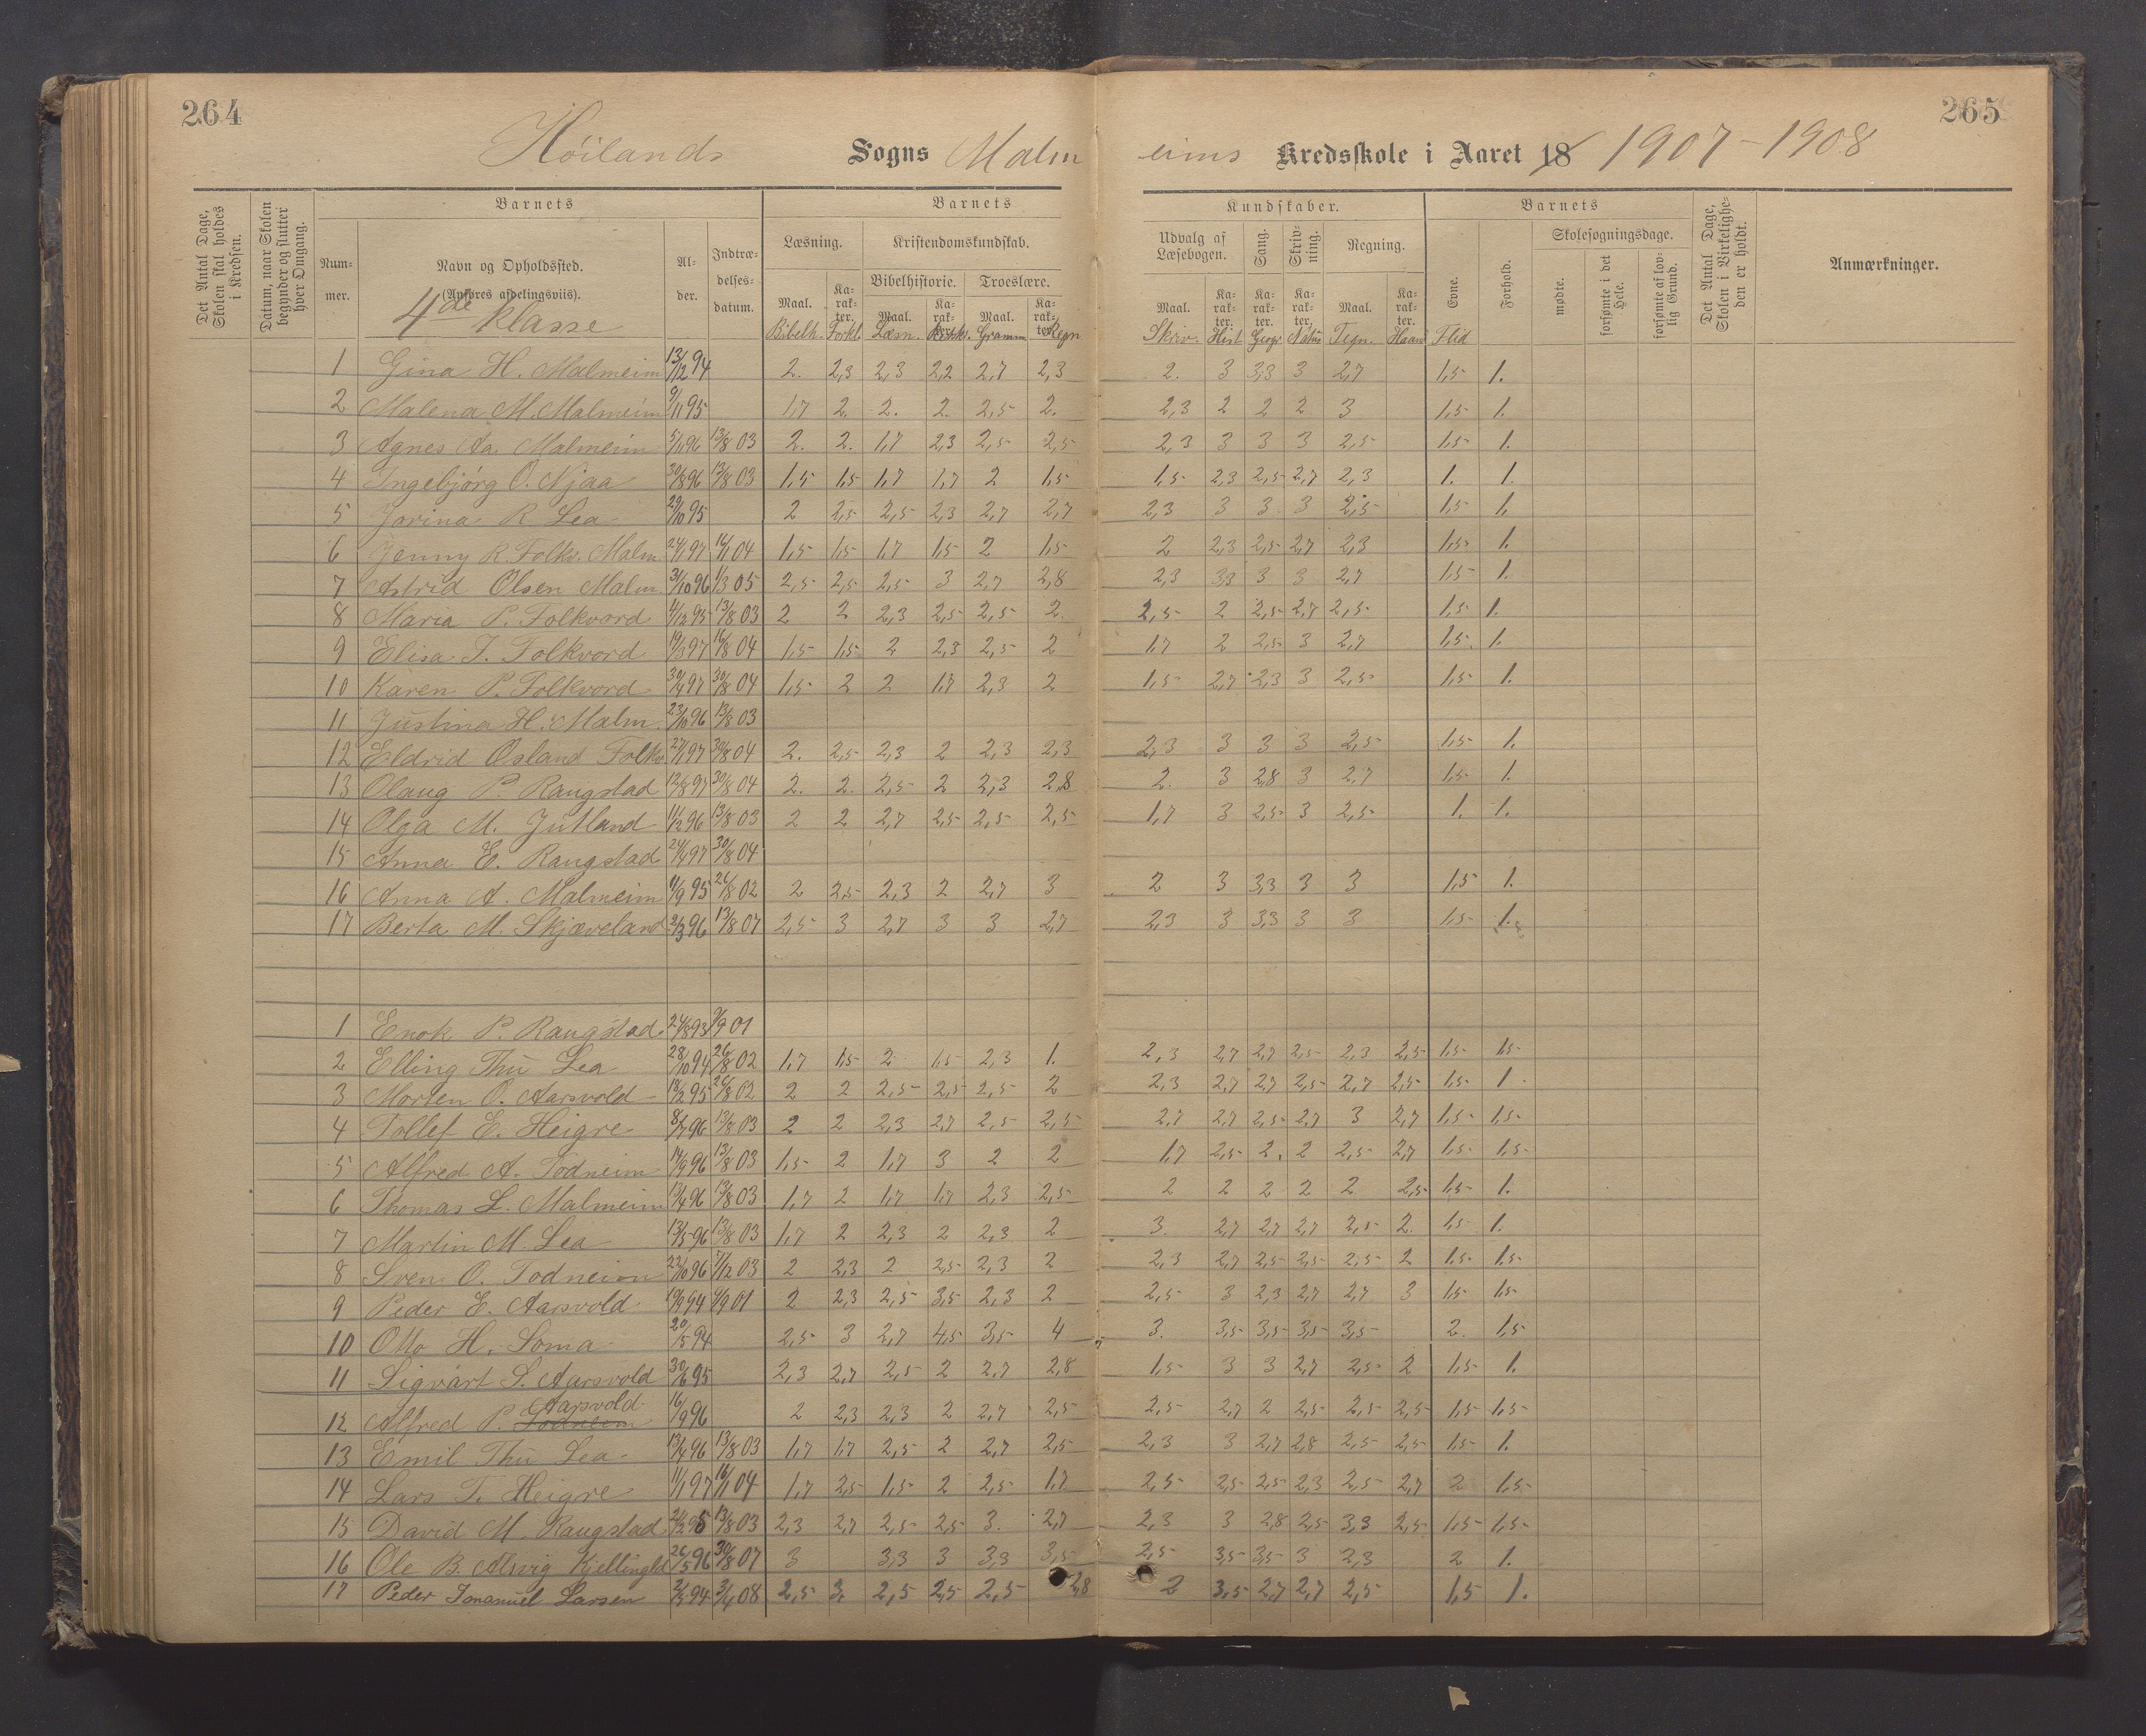 264
265
Höilands Sogns Malm eims Kredsskole i Aaret 18 1907-1908
Det Antal Dage, Skolen skal holdes i Kredsen.
Datum, naar Skolen begynder og slutter hver Omgang.
Barnets
Barnets
Kundskaber.
Barnets
Num-mer.
Navn og Opholdssted.
(Anføres afdelingsviis).
4de klasse
Al-der.
Indtræ-delses-datum.
Læsning.
Kristendomskundskab.
Bibelhistorie.
Troeslære.
Udvalg af Læsebogen.
Sang.
Skriv-ning.
Regning.
Evne.
Forhold.
Skolesøgningsdage.
mødte.
forsømte i det Hele.
forsømte af lov-lig Grund.
Det Antal Dage, Skolen i Virkelighe-den er holdt.
Anmærkninger.
Maal. Ka-rak-ter. Maal. Ka-rak-ter. Maal. Ka-rak-ter. Maal. Ka-rak-ter. Ka-rak-ter. Ka-rak-ter. Maal. Ka-rak-ter.
Bibelh. Forkl. Læsn. Gramm Regn Skriv. Hist Geogr Natur Tegn. Haan Flid
1 Gina H. Malmeim 13/12 94 2. 2,3 2,3 2,2 2,7 2,3 2. 3 3,3 3 2,7 1,5 1.
2 Malena M. Malmeim 9/11 95 1,7 2. 2. 2. 2,5 2. 2,3 2 2 2 3 1,5 1.
3 Agnes Aa. Malmeim 5/1 96 13/8 03 2. 2. 1,7 2,3 2,5 2,5 2,3 3 3 3 2,5 1,5 1.
4 Ingebjørg O. Njaa 30/8 96 13/8 03 1,5 1,5 1,7 1,7 2 1,5 1,5 2,3 2,5 2,7 2,3 1. 1.
5 Jorina R Lea 29/10 95 2 2,5 2,5 2,3 2,7 2,7 2,3 3 3 3 2,5 1,5 1.
6 Jenny R. Folkv. Malm. 24/1 97 16/1 04 1,5 1,5 1,7 1,5 2 1,5 2 2,3 2,5 2,7 2,3 1,5 1.
7 Astrid Olsen Malm. 31/10 96 1/3 05 2,5 2,5 2,5 3 2,7 2,8 2,3 3,3 3 3 2,7 1,5 1.
8 Maria P. Folkvord 4/12 95 13/8 03 2 2 2,3 2,5 2,5 2. 2,5 2 2,5 2,7 2,5 1,5 1.
9 Elisa T. Folkvord 19/3 97 16/8 04 1,5 1,5 2 2,3 2,5 2 1,7 2 2,5 3 2,7 1,5. 1.
10 Karen P. Folkvord 30/4 97 30/8 04 1,5 2 2 1,7 2,3 2 1,5 2,7 2,3 3 2,5 1,5 1.
11 Justina H. Malm. 23/10 96 13/8 03
12 Eldrid Osland Folkv 27/1 97 30/8 04 2. 2,5 2,3 2 2,3 2,3 2,3 3 3 3 2,5 1,5 1.
13 Olaug P. Raugstad 12/8 97 30/8 04 2. 2. 2,5 2 2,3 2,8 2. 3 2,8 3 2,7 1,5 1.
14 Olga M. Jutland 11/12 96 13/8 03 2 2 2,7 2,5 2,5 2,5 1,7 3 2,5 3 2,5 1. 1.
15 Anna E. Raugstad 24/4 97 30/8 04
16 Anna A. Malmeim 11/9 95 26/8 02 2 2,5 2,3 2 2,7 3 2 3 3,3 3 3 1,5 1.
17 Berta M. Skjæveland 2/3 96 13/8 07 2,5 3 2,7 3 3 2,7 2,3 3 3,3 3 3 1,5 1.
1 Enok P. Raugstad 24/8 93 9/9 01
2 Elling Thu Lea 28/10 94 26/8 02 1,7 1,5 2 1,5 2,3 1. 2,3 2,7 2,7 2,5 2,3 2,5 1,5 1,5
3 Morten O. Aarsvold 18/12 95 26/8 02 2 2 2,5 2,5 2,5 2 2,3 2,7 2,7 2,5 2,7 2,5 1,5 1
4 Tollef E. Heigre 8/7 96 13/8 03 2 2 2,3 2,7 2,5 2,5 2,7 2,7 2,5 2,7 3 2,7 1,5 1,5
5 Alfred A. Todneim 14/9 96 13/8 03 1,5 2 1,7 3 2 2 1,7 2,5 2. 2 2,5 2,7 1,5 1,5
6 Thomas L. Malmeim 13/4 96 13/8 03 1,7 2 1,7 1,7 2,3 2,5 2 2 2 2 2 2,5 1,5 1.
7 Martin M. Lea 13/5 96 13/8 03 1,7 2 2,3 2 2,3 2 3. 2,7 2,7 2,7 2,5 2. 1,5 1.
8 Sven O. Todneim 22/10 96 7/12 03 2 2,3 2 2,5 2,3 2 2,3 2,7 2,5 2,5 2,5 2 1,5 1,5
9 Peder E. Aarsvold 19/9 94 9/9 01 2 2,3 2,5 3,5 2,3 2 2,5 3 2,3 2,7 2,7 3 1,5 1,5
10 Otto H. Soma 20/5 94 2,5 3 2,7 4,5 3,5 4 3. 3,5 3,5 3,5 3,5 2. 1,5
11 Sigvart S. Aarsvold 30/6 95 2,3 2,7 2,5 2 2,7 2,8 1,5 3 3 2,7 2,5 2 1,5 1.
12 Alfred P. Todneim Aarsvold 16/9 96 2 2,3 2,3 2 2,7 2,5 2,5 2,7 2 2,5 2,5 2,5 1,5 1,5
13 Emil Thu Lea 13/4 96 13/8 03 1,7 1,7 2,5 2 2,7 2,5 2,3 3 2,7 2,8 2,5 2,5 1,5 1.
14 Lars T. Heigre 11/1 97 16/1 04 1,7 2,5 1,5 2 2,5 1,7 2,5 2,5 2,5 2,3 2,5 2,7 2 1,5
15 David M. Raugstad 13/8 03 2,3 2,7 2,5 2,5 3. 2,7 2,3 3 2,8 2,5 3,3 2,5 1,5 1,5
16 Ole B. Alsvig Kjellingld 26/5 96 30/8 07 3 3,3 3 3,3 3,5 2,5 3,5 3,5 3 2,3 2 1.
17 Peder Imanuel Larsen 2/5 94 3/4 08 2,5 3. 2,5 2,5 2,5 2,8 2 3,5 2,7 2,7 2,5 1,5 1.